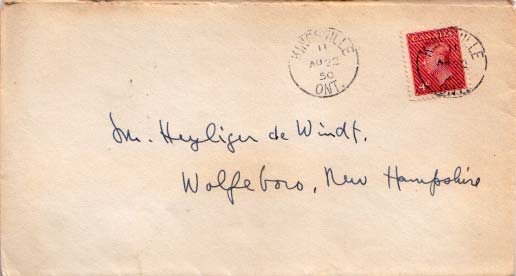 KINGSVILLE
11
AU 22
50
ONT.
CANADA
4
Heyliger de Windt.
Wolfeboro, New Hampshire